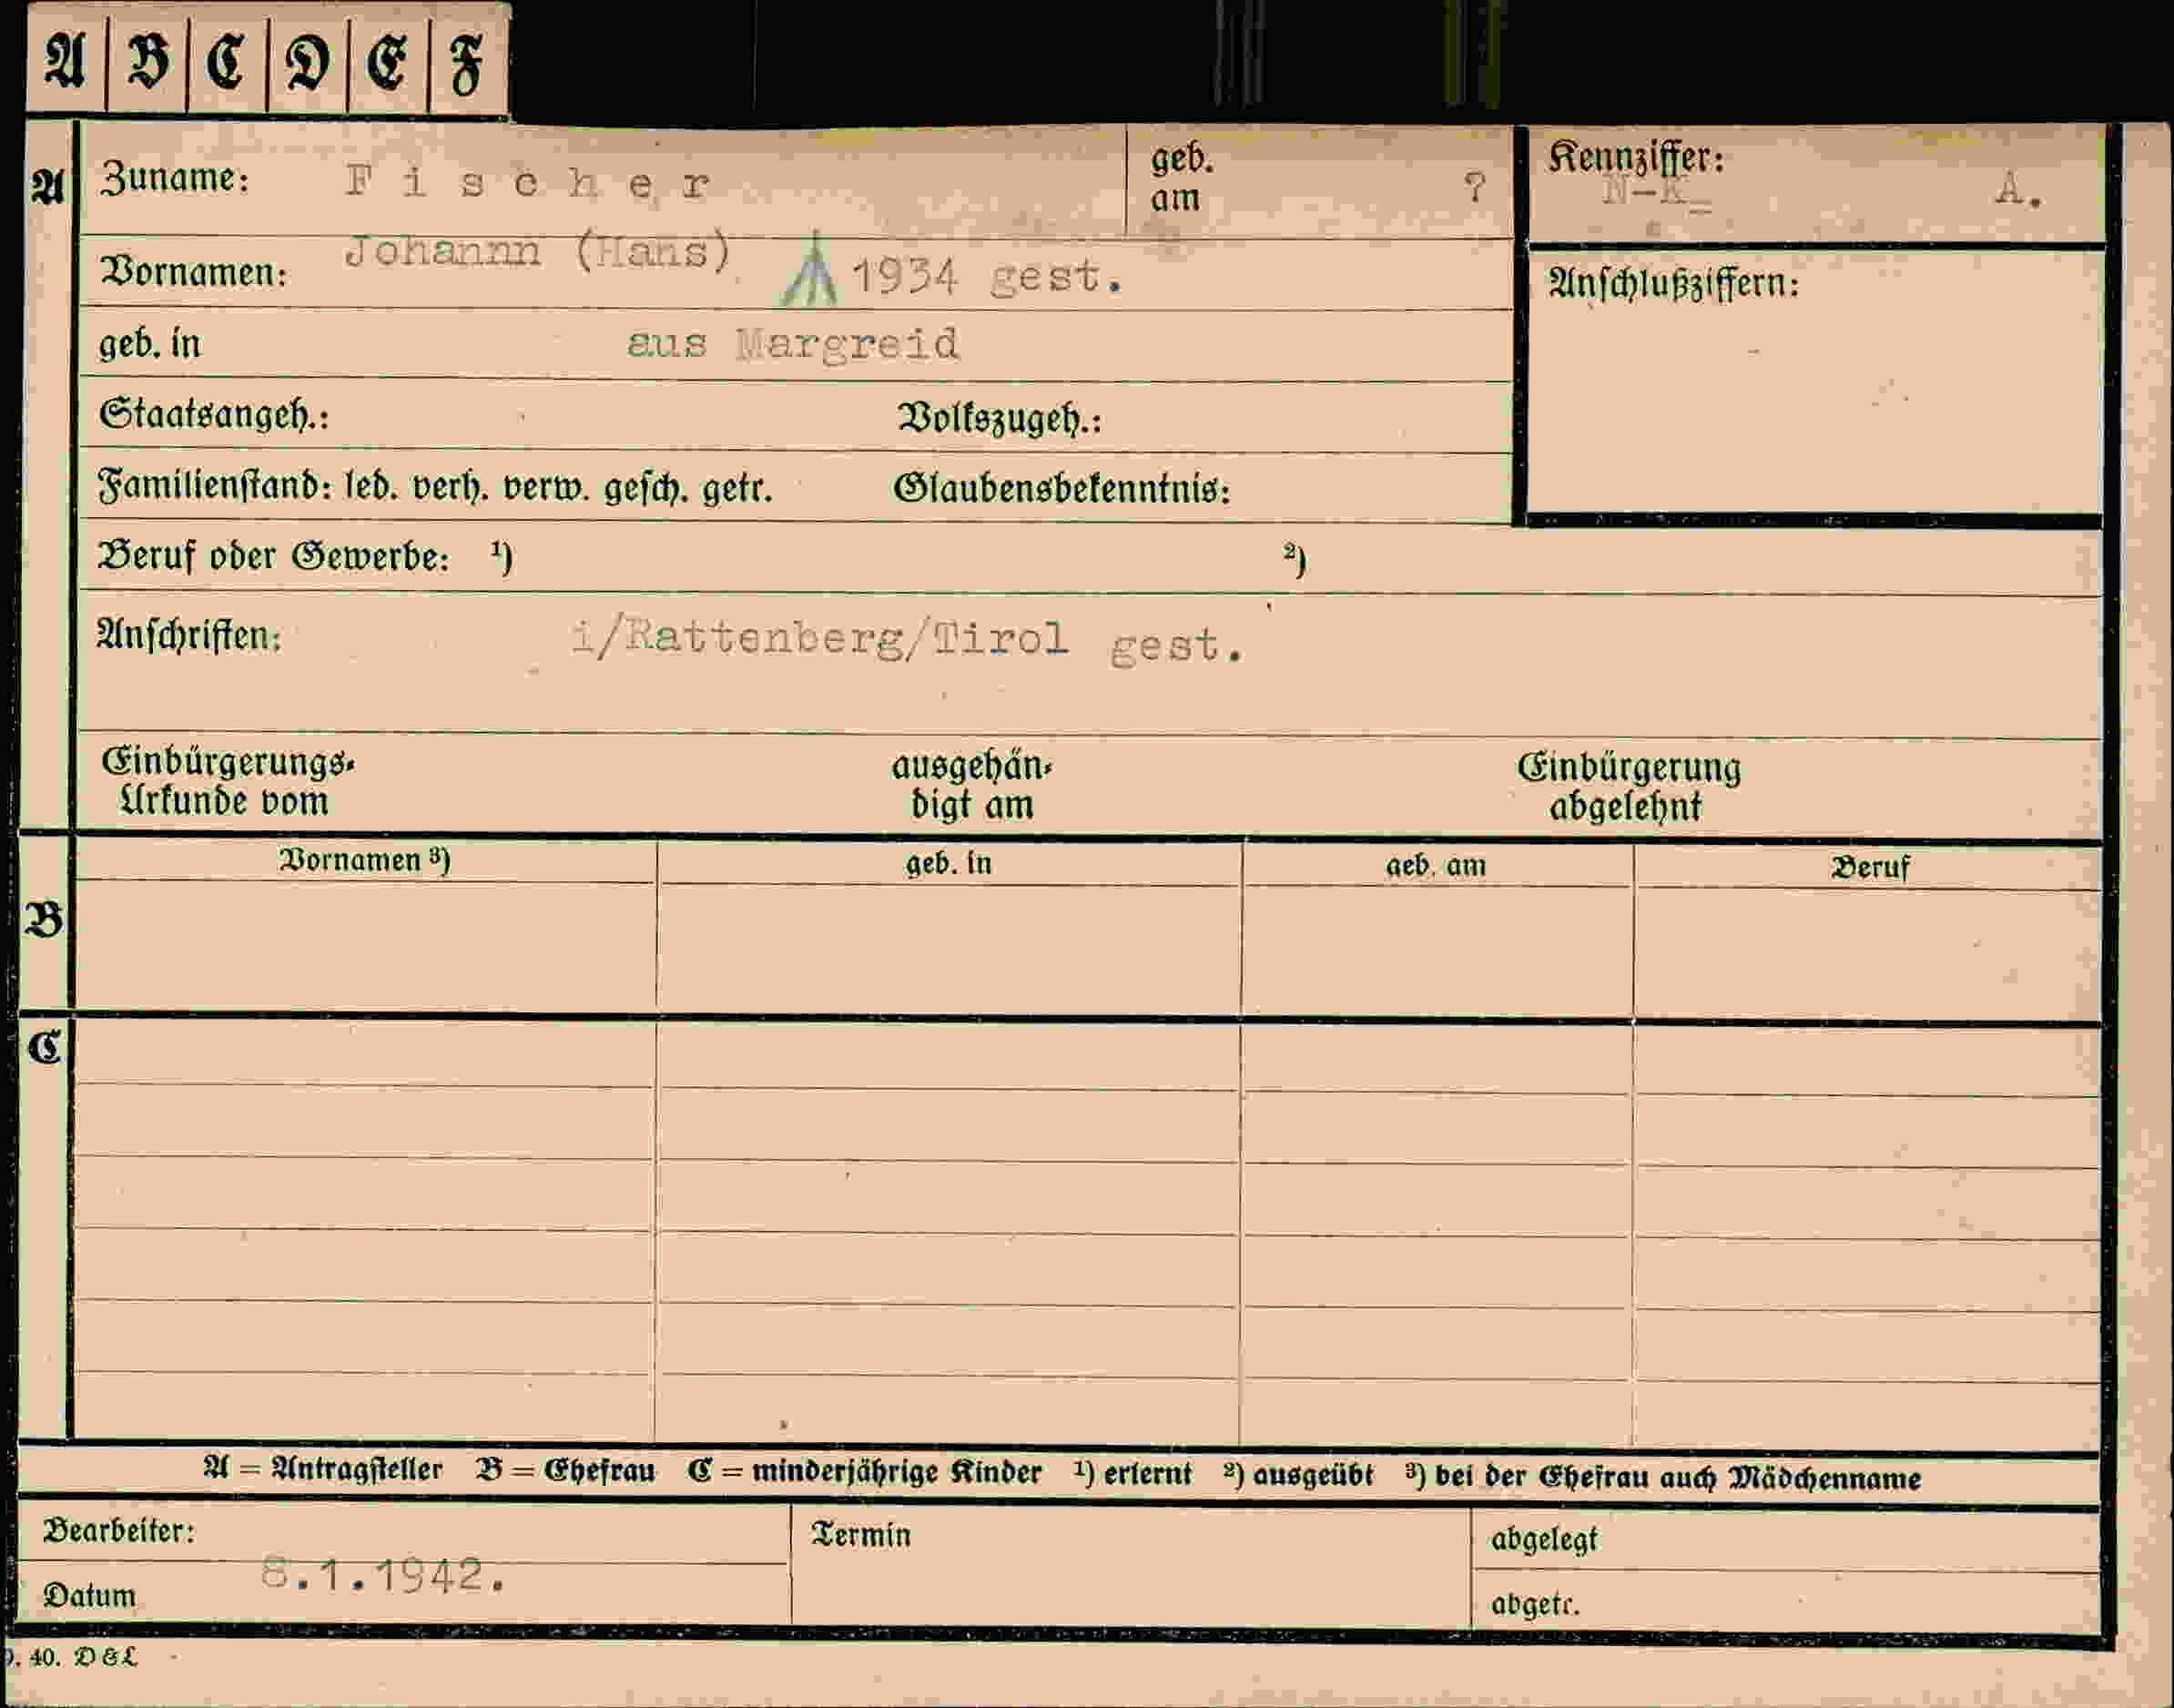 A B C D E F
A Zuname: Fischer geb. am ? Kennziffer: N-K A.
Vornamen: Johann (Hans) 1934 gest. Anschlußziffern:
geb. in aus Margreid
Staatsangeh.: Volkszugeh.:
Familienstand: led. verh. verw. gesch. getr. Glaubensbekenntnis:
Beruf oder Gewerbe: ¹) ²)
Anschriften: i/Rattenberg/Tirol gest.
Einbürgerungs- ausgehän- Einbürgerung
Urkunde vom digt am abgelehnt
Vornamen ³) geb. in geb. am Beruf
B
C
A = Antragsteller B = Ehefrau C = minderjährige Kinder ¹) erlernt ²) ausgeübt ³) bei der Ehefrau auch Mädchenname
Bearbeiter: Termin abgelegt
Datum 8.1.1942. abgetr.
40. D & L